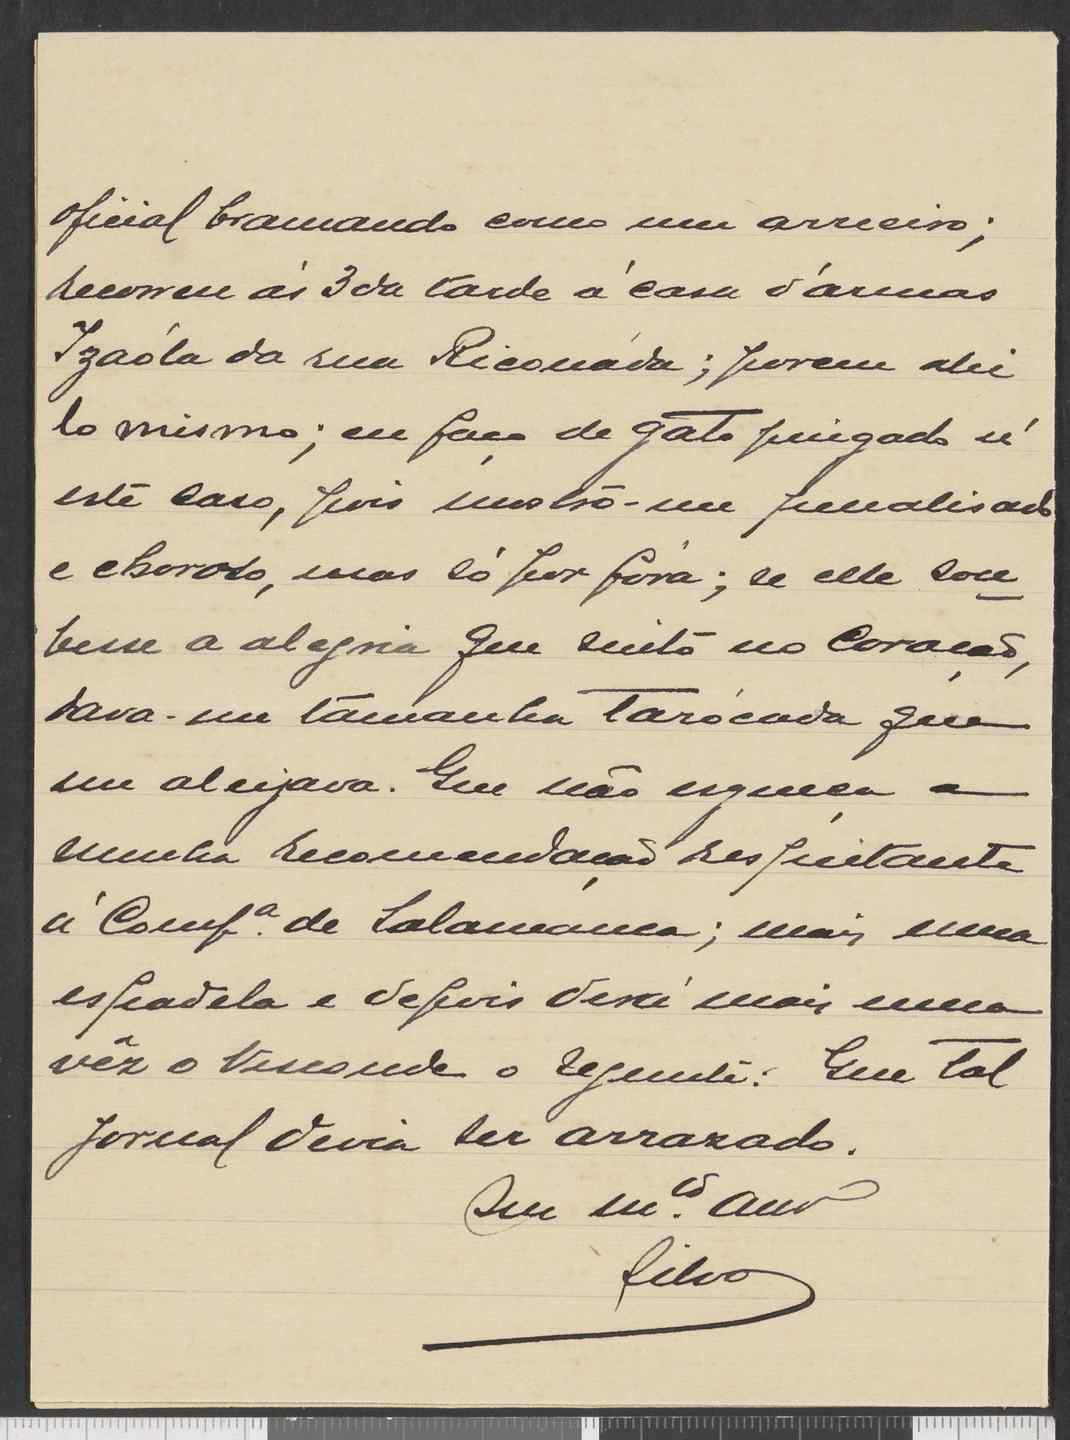 oficial bramando como um arrieiro;
recorreu ás 3 da tarde á casa d'ármas
Izaóla da rua Riconáda; porem ahi
lo mismo; eu faço de gato pingado n'
este caso, pois mostrō-me penalisado
e choroso, mas só por fóra; se elle sou
besse a alegria que sinto no coração,
dava-me tamanha tarócada que
me aleijava. Que não esqueça a
minha recomendação respeitante
á Comp.ª de Salamanca; mais uma
espadela e depois dirá mais uma
vêz o Visconde o seguinte: Que tal
jornal devia ser arrazado.
Seu m.to am.º
Silva